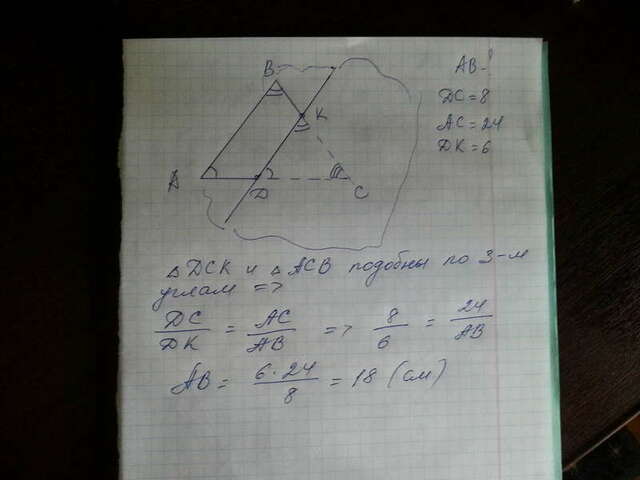 B
K
A
D
C
AB-
DC=8
AC=24
DK=6
△DCK и △ACB подобны по 3-м
углам =>
DC/DK = AC/AB => 8/6 = 24/AB
AB = 6·24/8 = 18 (см)